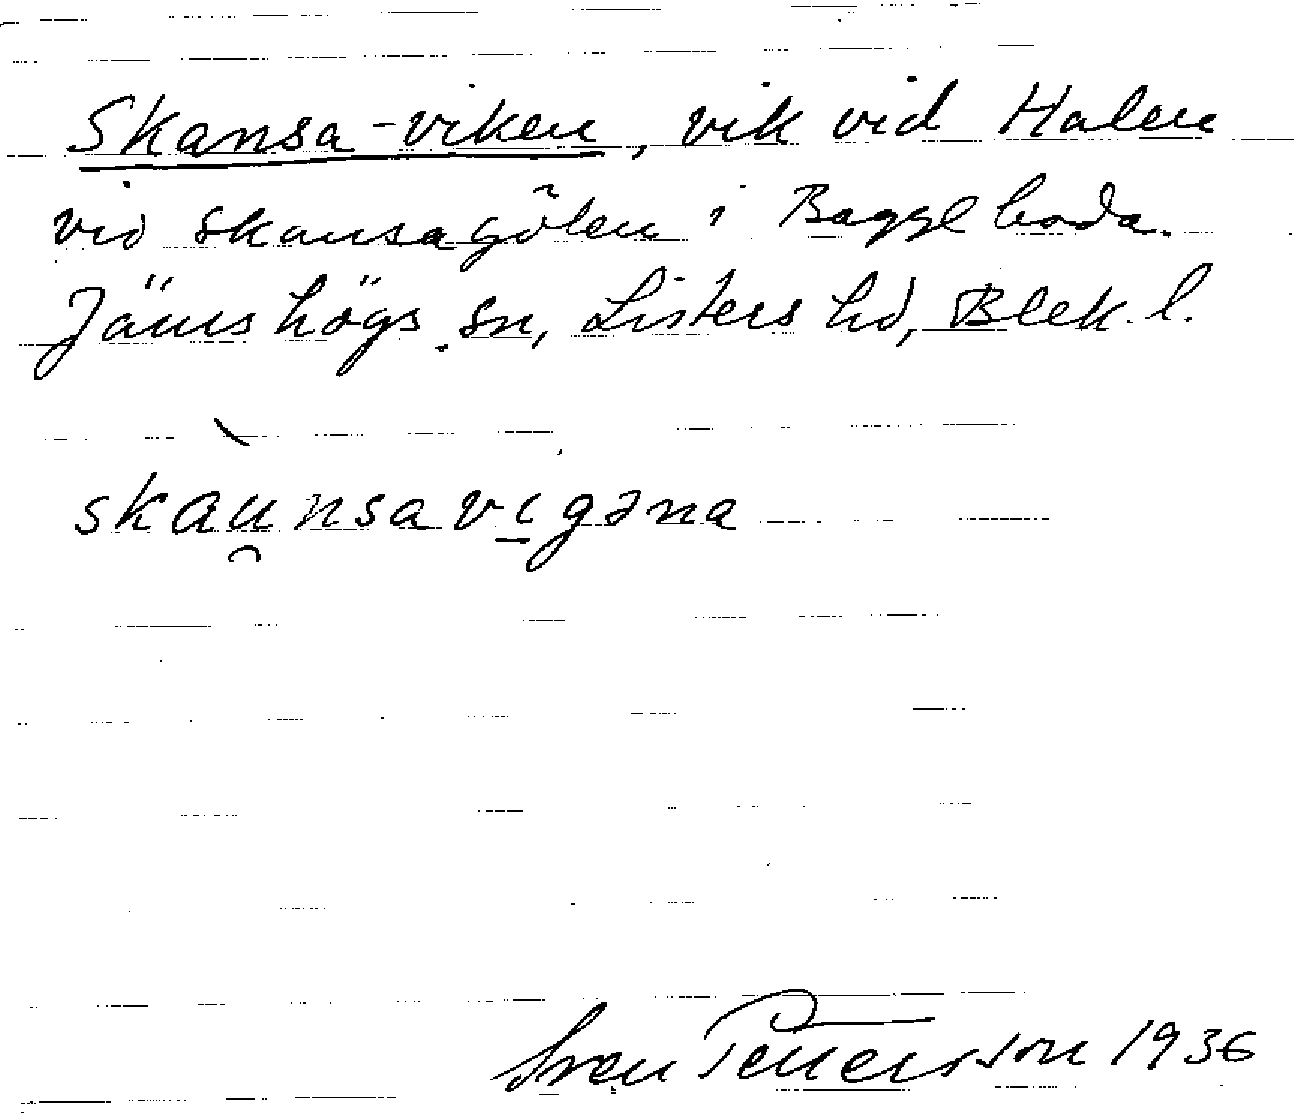 Skansa-viken, vik vid Halen
vid skansagölen i Baggeboda.
Jämshögs sn, Listers hd, Blek. l.
skau̯nsavi̱gəna
Sven Pettersson 1936